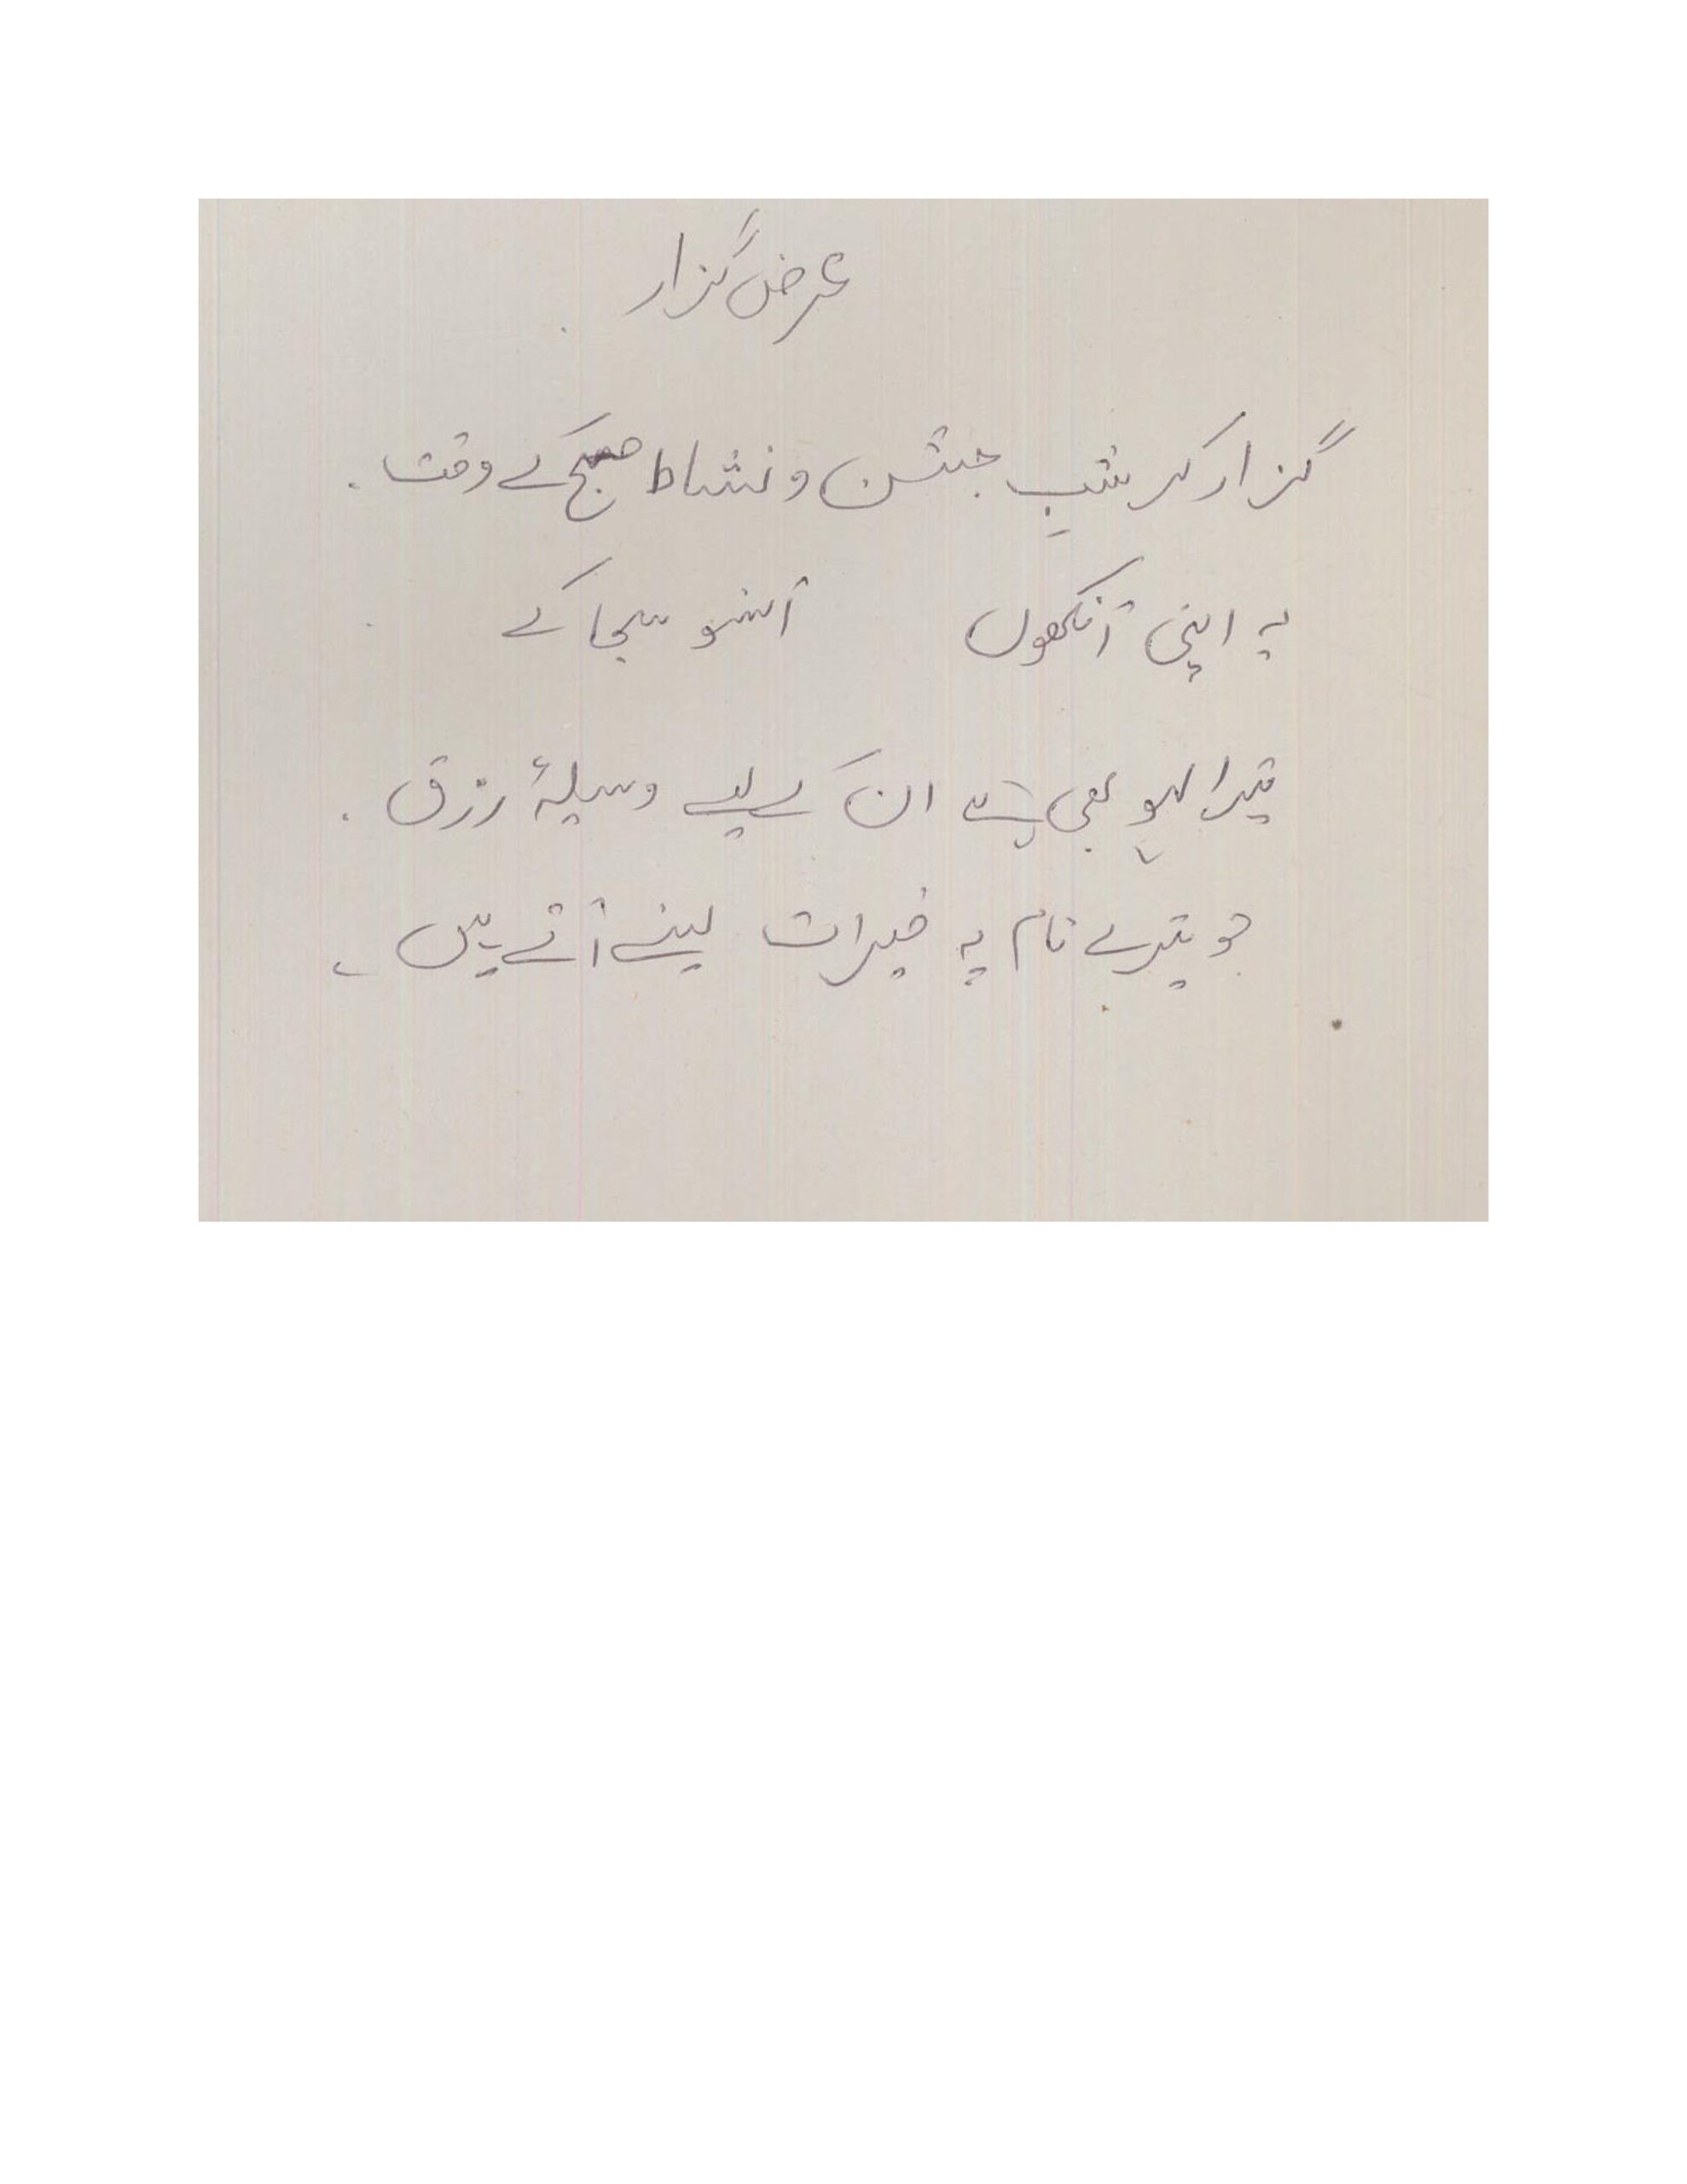 عرض گزار
گزار کر شبِ جشن و نشاط صبح کے وقت
یہ اپنی آنکھوں آنسو سجا کے
تیرا لہو بھی ہے ان کے لیے وسیلۂ رزق
جو تیرے نام پہ خیرات لینے آتے ہیں